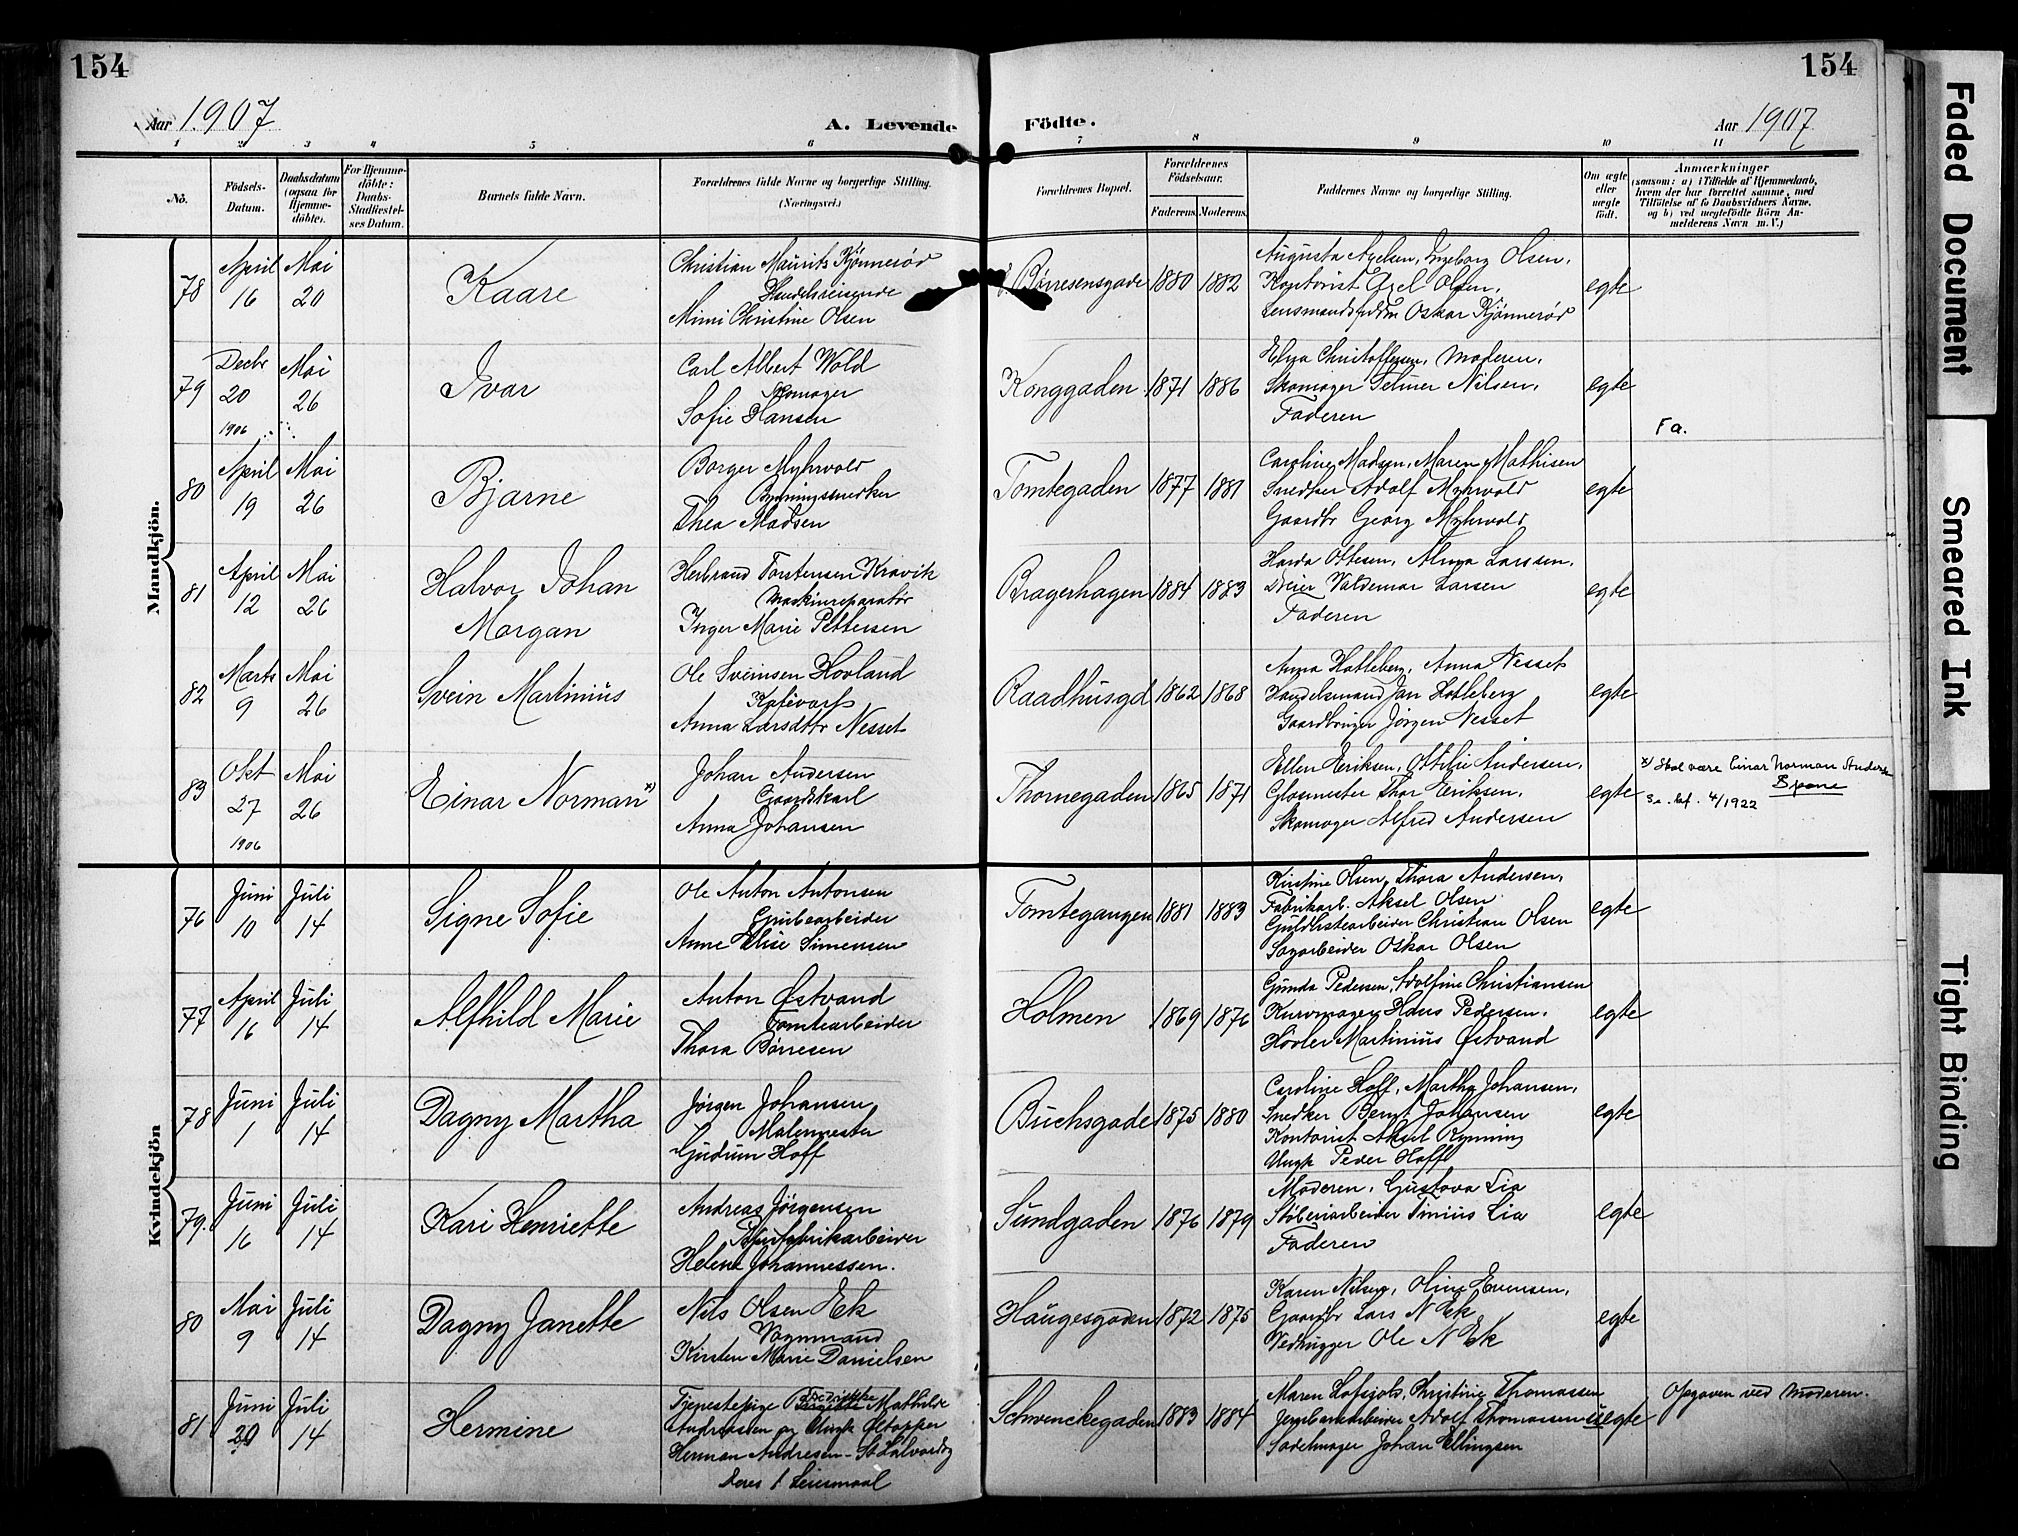 154
154
Aar 1907
A. Levende Födte.
Aar 1907
1 2 3 4 5 6 7 8 9 10 11
No.
Födsels-Datum.
Daabsdatum (ogsaa for Hjemme-döbte).
For Hjemme-döbte: Daabs-Stadfæstel-ses Datum.
Barnets fulde Navn.
Forældrenes fulde Navne og borgerlige Stilling. (Næringsvei.)
Forældrenes Bopæl.
Forældrenes Födselsaar.
Faderens. Moderens.
Faddernes Navne og borgerlige Stilling.
Om ægte eller uægte födt.
Anmærkninger
(saasom: a) i Tilfælde af Hjemmedaab, hvem der har forrettet samme, med Tilföielse af to Daabsvidners Navne, og b) ved uægtefödte Börn An-melderens Navn m. V.)
Mandkjön.
78
April 16
Mai 20
Kaare
Christian Maurits Kjønnerød
Handelsreisende
Mimi Christine Olsen
Børresensgade
1880 1882
Augusta Axelsen, Ingeborg Olsen,
Kontorist Axel Olsen,
Oskar Kjønnerød
egte
79
Decbr 20 1906
Mai 26
Ivar
Carl Albert Wold
Skomager
Sofie Hansen
Konggaden
1871 1886
Elna Christoffersen, Moderen,
Skomager Selmer Nilsen,
Faderen
egte
Fa.
80
April 19
Mai 26
Bjarne
Borger Myhrvold
Bygningssnedker
Thea Madsen
Tomtegaden
1877 1881
Caroline Madsen, Maren Mathisen
Snedker Adolf Myhrvold
Gaardbr Georg Myhrvold
egte
81
April 12
Mai 26
Halvor Johan
Morgan
Herbrand Torstensen Kravik
Maskinreparatør
Inger Marie Pettersen
Bragerhagen
1884 1883
Harda Ottesen, Alma Larssen,
Dreier Valdemar Larsen
Faderen
egte
82
Marts 9
Mai 26
Svein Martinius
Ole Sveinsen Hovland
Kafévært
Anna Larsdttr Nesset
Raadhusgd
1862 1868
Anna Hotleberg, Anna Nesset
Handelsmand Jan Hotleberg
Gaardbruger Jørgen Nesset
egte
83
Okt 27 1906
Mai 26
Einar Norman x)
Johan Andersen
Gaardskarl
Anna Johansen
Thornegaden
1865 1871
Ellen Eriksen, Ottilie Andersen,
Glasmester Thor Eriksen,
Skomager Alfred Andersen
egte
x) Skal være Einar Norman
4/1922
Kvindekjön
76
Juni 10
Juli 14
Signe Sofie
Ole Anton Antonsen
Grubearbeider
Anne Elise Simensen
Tomtegangen
1881 1883
Kirstine Olsen, Thora Andersen,
Fabrikarb. Aksel Olsen
Guldlistearbeider Christian Olsen
Sagarbeider Oskar Olsen
egte
77
April 16
Juli 14
Alfhild Marie
Anton Østvand
Tomtearbeider
Thora Børresen
Holmen
1869 1876
Gunda Pedersen, Adolfine Christiansen
Kurvmager Hans Pedersen,
Høvler Martinius Østvand
egte
78
Juni 1
Juli 14
Dagny Martha
Jørgen Johansen
Malermester
Gudrun Hoff
Buchsgade
1875 1880
Caroline Hoff, Martha Johansen,
Snedker Bernt Johansen
Kontorist Aksel Rynning
Ungk Peder Hoff
egte
79.
Juni 16
Juli 14
Kari Henriette
Andreas Jørgensen
Papirfabrikarbeider
Helene Johannessen.
Sundgaden
1876 1879
Moderen, Gustava Lia
Støberiarbeider Tinius Lia
Faderen
egte
80
Mai 9
Juli 14
Dagny Janette
Nils Olsen Ek
Vognmand
Kirsten Marie Danielsen
Haugesgaden
1872 1875
Karen Nilsen, Oline Evensen,
Gaardbr Lars N Ek
Vedhugger Ole N Ek
egte
81
Juni 20
Juli 14
Hermine
Tjenestepige Mathilde
Andreasen og Ungk Øltapper
Herman Andresen - St Halvardsg
Deres 1 Leiermaal
Schwenckegaden
1883 1884
Maren Lofsjøb, Christine Thomassen
Jernbanearbeider Adolf Thomassen
Sadelmager Johan Ellingsen
uegte
Opgaven ved Moderen.
Faded Document
Smeared Ink
Tight Binding